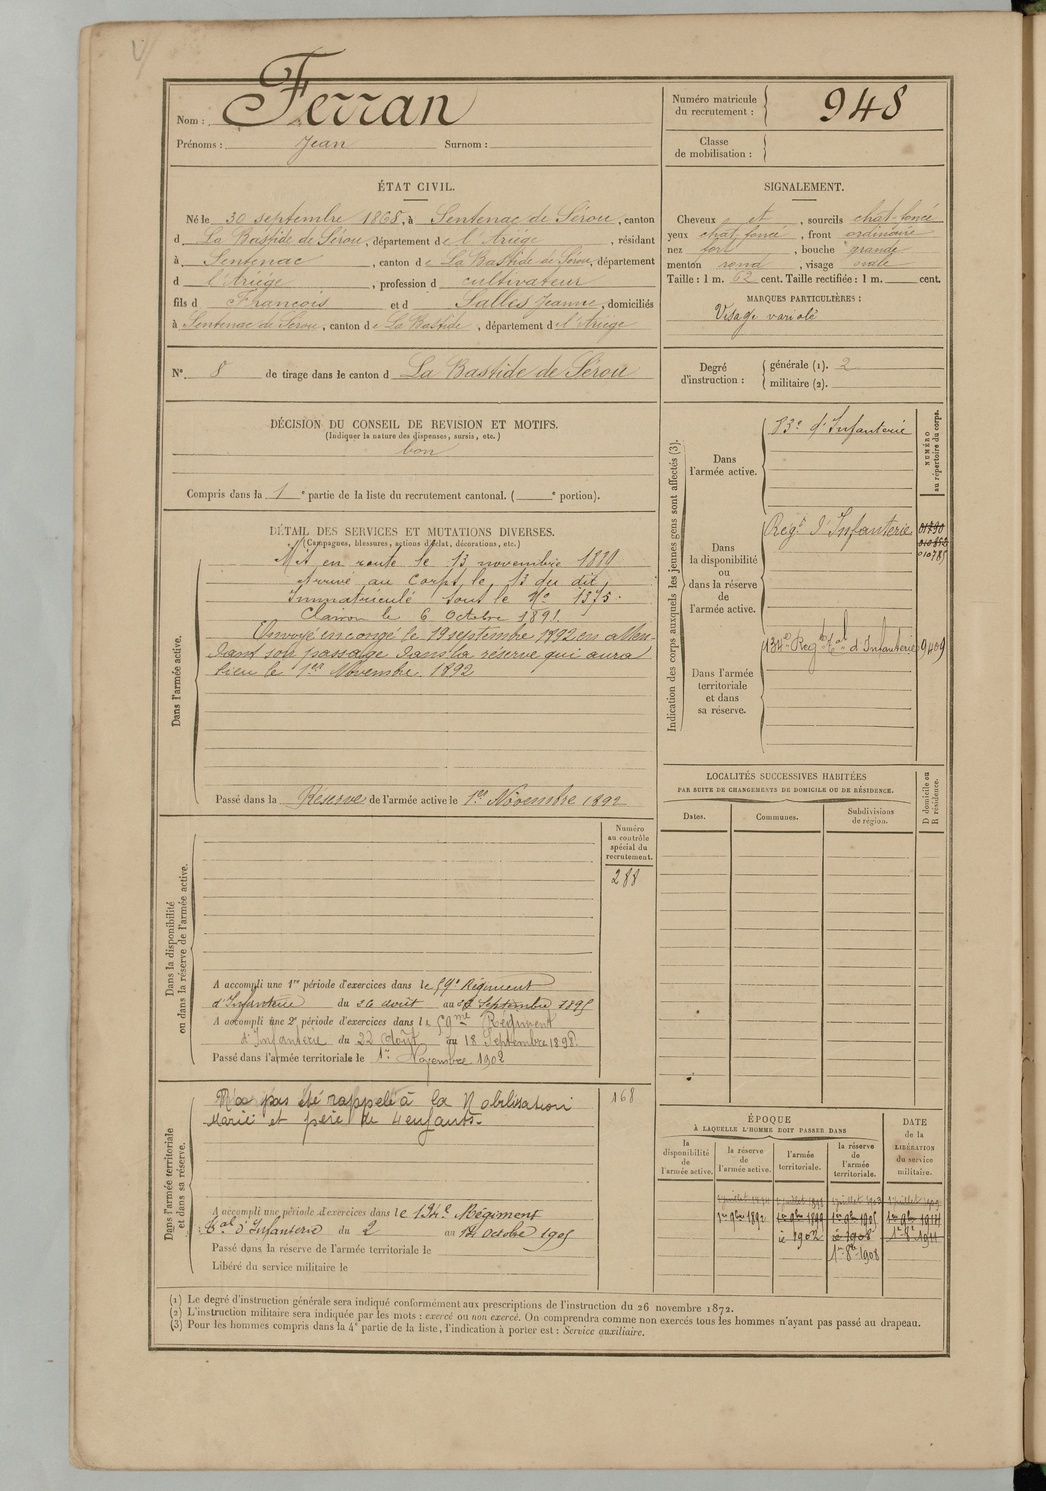 Nom : Ferran
Prénoms : Jean Surnom :
Numéro matricule
du recrutement : 948
Classe
de mobilisation :
ÉTAT CIVIL.
Né le 30 septembre 1868, à Sentenac de Sérou, canton
d La Bastide de Sérou, département de l'Ariège, résidant
à Sentenac, canton de La Bastide de Sérou, département
d l'Ariège, profession d cultivateur
fils d François et d Salles Jeanne, domiciliés
à Sentenac de Sérou, canton de La Bastide, département de l'Ariège
SIGNALEMENT.
Cheveux et, sourcils chat-foncé
yeux chat foncé, front ordinaire
nez fort, bouche grande
menton rond, visage ovale
Taille : 1 m. 62 cent. Taille rectifiée : 1 m. cent.
MARQUES PARTICULIÈRES :
Visage variolé
N° 8 de tirage dans le canton d La Bastide de Sérou
Degré
d'instruction :
générale (1). 2
militaire (2).
DÉCISION DU CONSEIL DE REVISION ET MOTIFS.
(Indiquer la nature des dispenses, sursis, etc.)
bon
Compris dans la 1e partie de la liste du recrutement cantonal. ( e portion).
Indication des corps auxquels les jeunes gens sont affectés (3).
NUMÉRO
au répertoire du corps.
Dans
l'armée active.
83e d'Infanterie
Dans
la disponibilité
ou
dans la réserve
de
l'armée active.
Regt d'Infanterie
010785
Dans l'armée
territoriale
et dans
sa réserve.
134e Regt tal d'Infanterie 9409
DÉTAIL DES SERVICES ET MUTATIONS DIVERSES.
(Campagnes, blessures, actions d'éclat, décorations, etc.)
Dans l'armée active.
Mis en route le 13 novembre 1889
Arrivé au Corps le 13 du dit
Immatriculé sous le No 1375.
Clairon le 6 Octobre 1891
Envoyé en congé le 19 septembre 1892 en atten-
dant son passage dans la réserve qui aura
lieu le 1er Novembre 1892
Passé dans la Réserve de l'armée active le 1er Novembre 1892
LOCALITÉS SUCCESSIVES HABITÉES
PAR SUITE DE CHANGEMENTS DE DOMICILE OU DE RÉSIDENCE.
Dates. Communes. Subdivisions
de région.
D domicile ou
R résidence.
Dans la disponibilité
ou dans la réserve de l'armée active.
Numéro
au contrôle
spécial du
recrutement.
288
A accompli une 1re période d'exercices dans le 59e Régiment
d'Infanterie du 26 août au Septembre 1895
A accompli une 2e période d'exercices dans le 59me Régiment
d'Infanterie du 22 Août au 18 Septembre 1898.
Passé dans l'armée territoriale le 1er Novembre 1902
Dans l'armée territoriale
et dans sa réserve.
N'a pas été rappelé à la Mobilisation
Marié et père de 4 enfants.
168
A accompli une période d'exercices dans le 134e Régiment
tal d'Infanterie du 2 au 14 Octobre 1905
Passé dans la réserve de l'armée territoriale le
Libéré du service militaire le
ÉPOQUE
À LAQUELLE L'HOMME DOIT PASSER DANS
la
disponibilité
de
l'armée active.
la réserve
de
l'armée active.
l'armée
territoriale.
la réserve
de
l'armée
territoriale.
DATE
de la
LIBÉRATION
du service
militaire.
1er 9bre 1892 1er 9bre 1899 1er 9bre 1905 1er 9bre 1914
1902 1908 1911
1908
(1) Le degré d'instruction générale sera indiqué conformément aux prescriptions de l'instruction du 26 novembre 1872.
(2) L'instruction militaire sera indiquée par les mots : exercé ou non exercé. On comprendra comme non exercés tous les hommes n'ayant pas passé au drapeau.
(3) Pour les hommes compris dans la 4e partie de la liste, l'indication à porter est : Service auxiliaire.